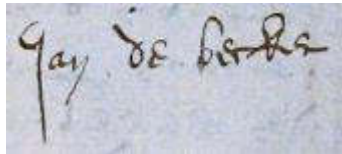 Jan de berke